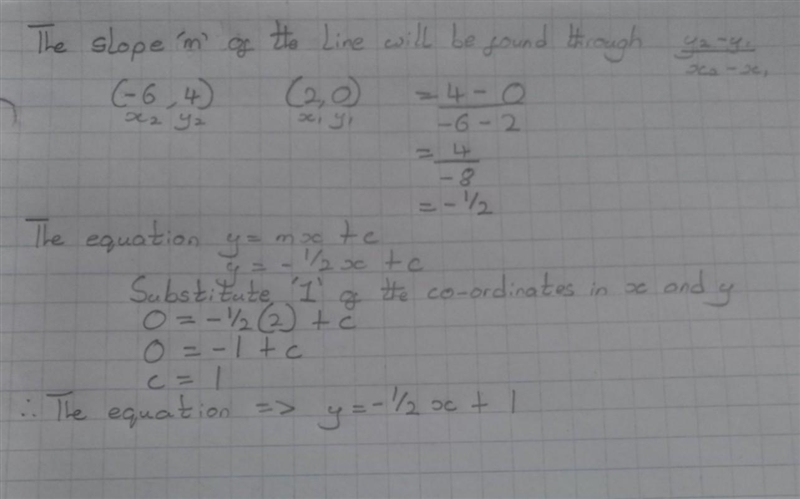 The slope 'm' of the line will be found through y2-y1
x2-x1
(-6, 4) (2, 0) = 4 - 0
x2 y2 x1 y1 -6 - 2
= 4
-8
= -1/2
The equation y = mx + c
y = -1/2x + c
Substitute '1' of the co-ordinates in x and y
0 = -1/2(2) + c
0 = -1 + c
c = 1
∴ The equation => y = -1/2x + 1